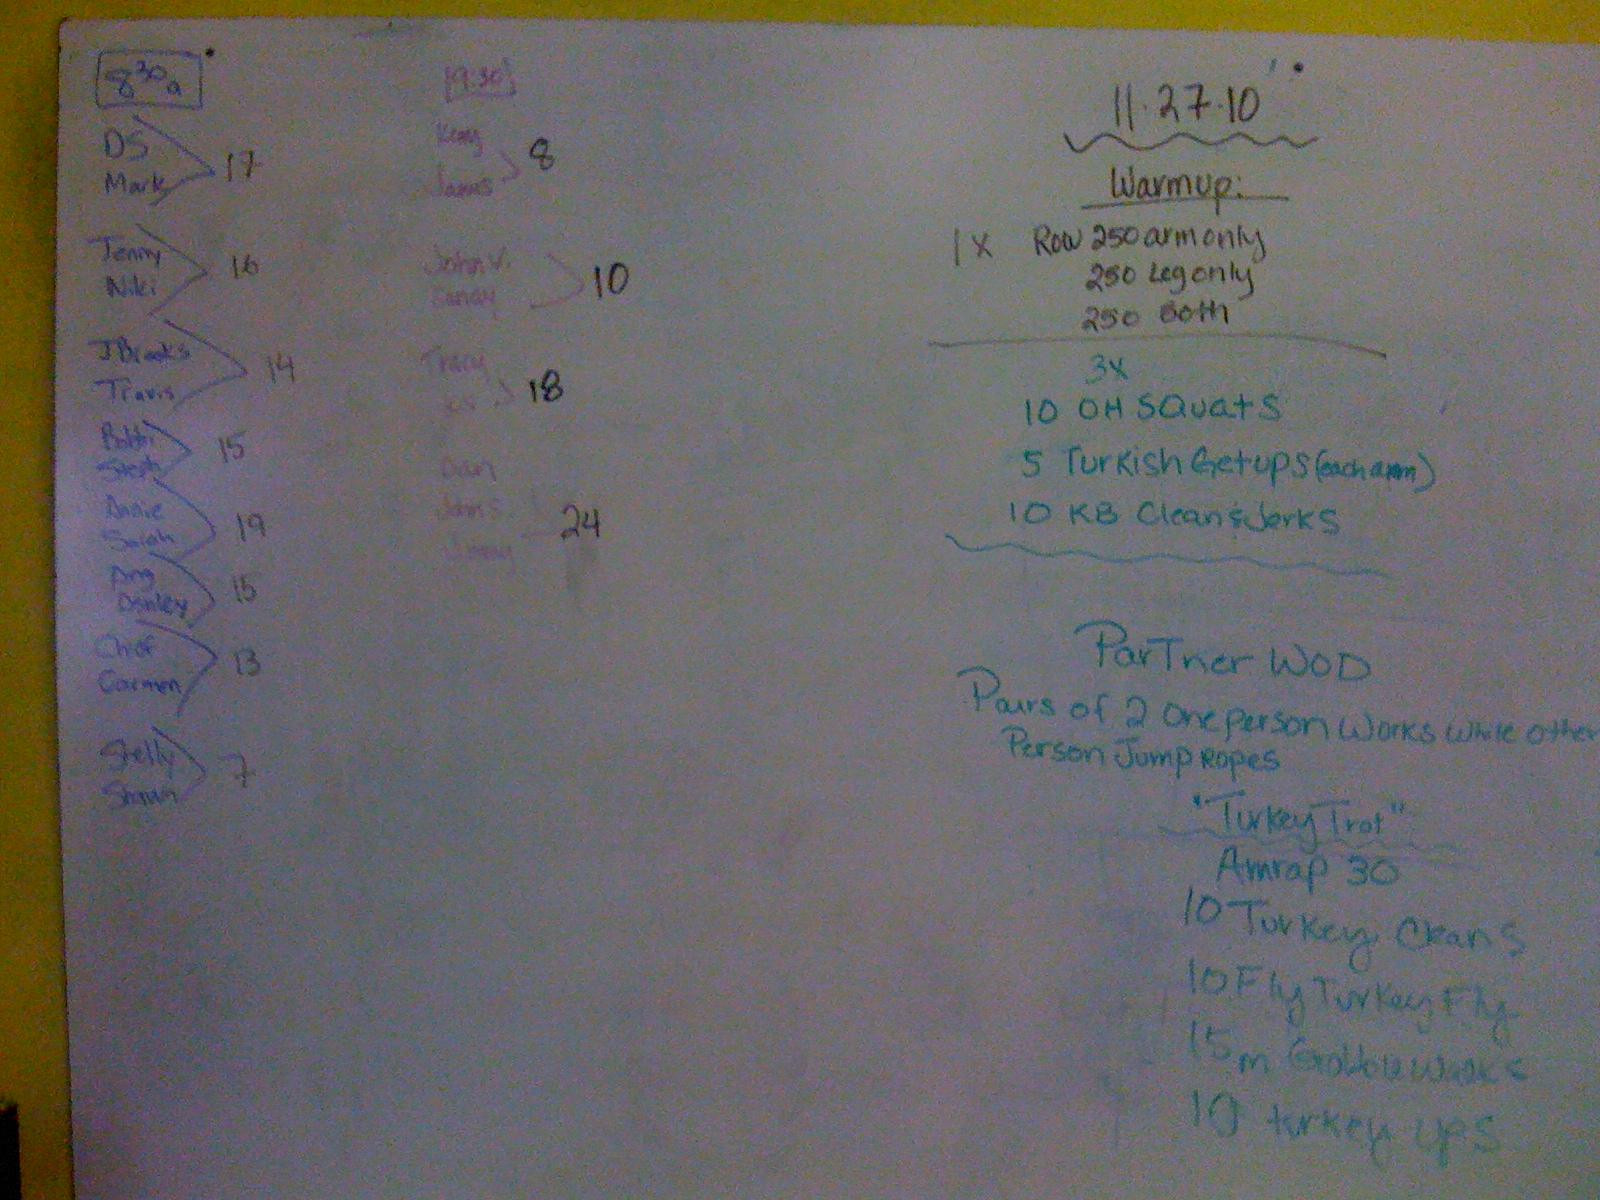 8 30 a
DS
Mark
17
Jenny
Niki
16
JBrooks
Travis
14
Bobbi
Steph
15
Annie
Sarah
19
Donley
15
Chief
Carmen
13
Shelly
Shawn
7
9:30
James
8
John V.
10
Tracy
18
Dan
John S.
24
11.27.10
Warmup:
1x Row 250 arm only
250 Leg only
250 Both
3x
10 OH SQuatS
5 Turkish Getups (each arm)
10 KB Clean & Jerks
ParTner WOD
Pairs of 2 one person works while other
Person Jump ropes
"Turkey Trot"
Amrap 30
10 Turkey Cleans
10 Fly Turkey Fly
15 m Gobble Walks
10 turkey UPS